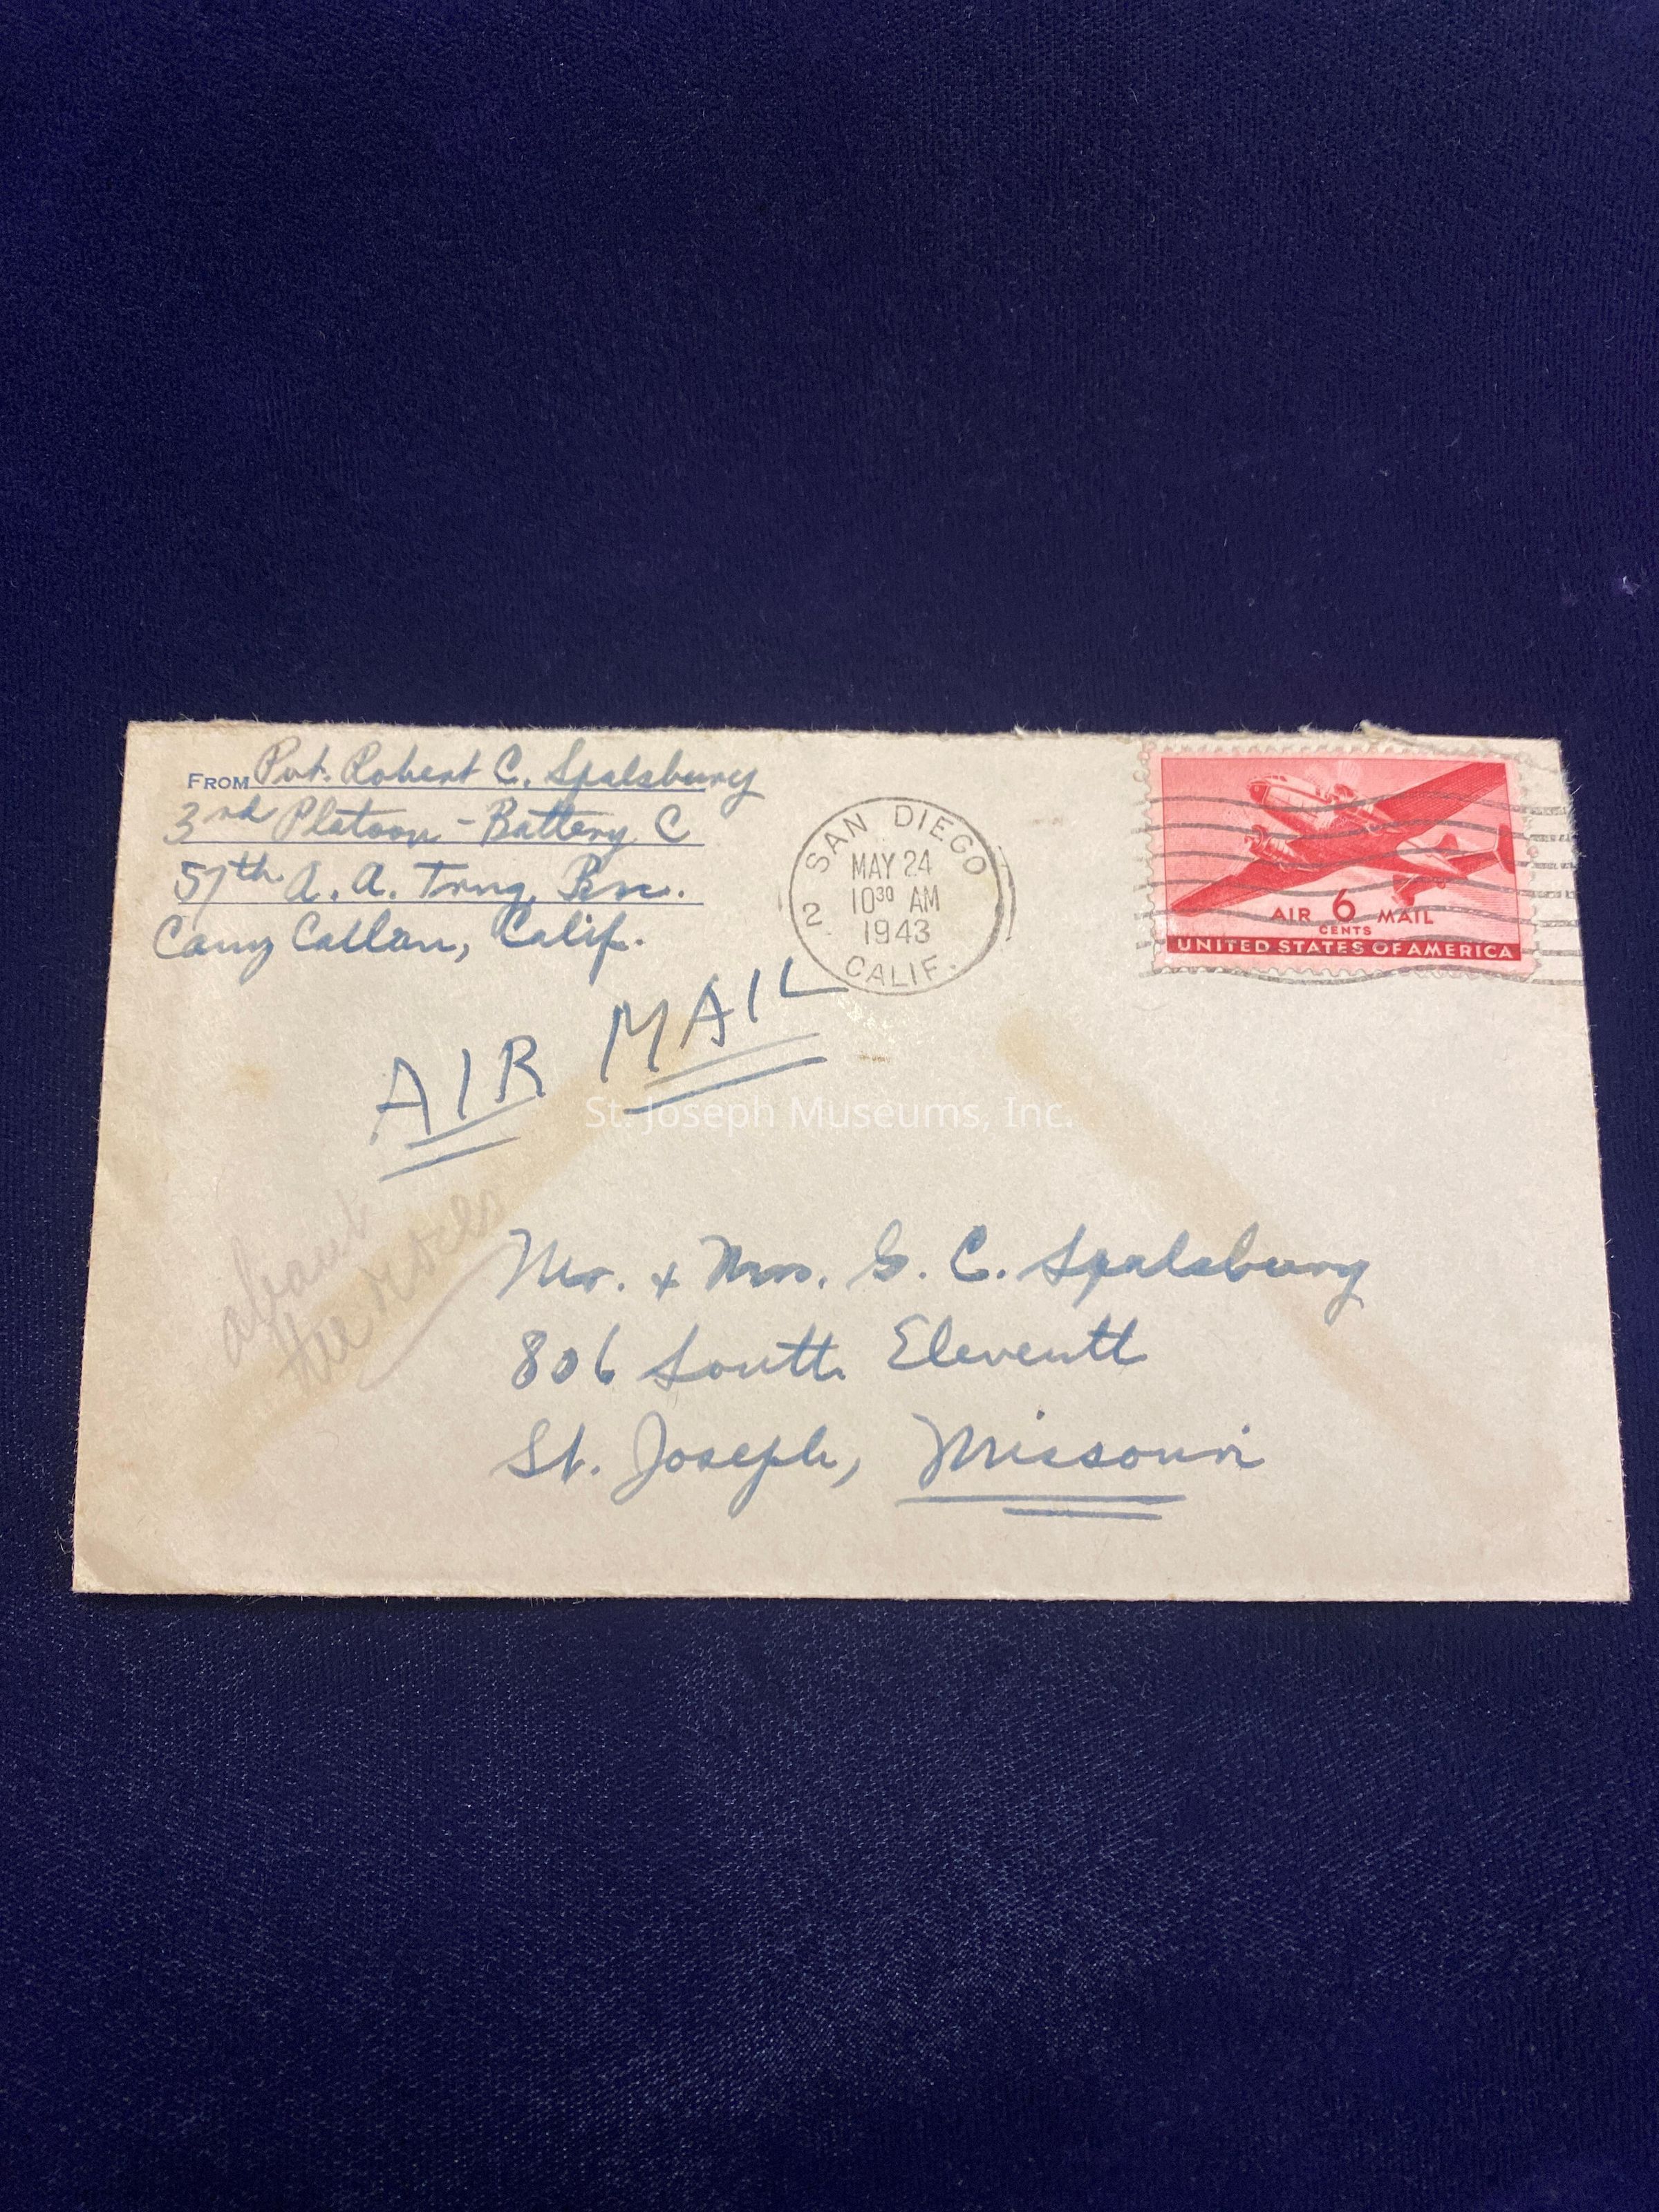 FROM Pvt. Robert C. Spalsbury
3rd Platoon - Battery C
57th A. A. Trng. Bn.
Camp Callan, Calif.
SAN DIEGO
MAY 24
10 30 AM
1943
2
CALIF.
AIR 6 MAIL
CENTS
UNITED STATES OF AMERICA
AIR MAIL
St. Joseph Museums, Inc.
about
the
Mr. + Mrs. G. C. Spalsbury
806 South Eleventh
St. Joseph, Missouri